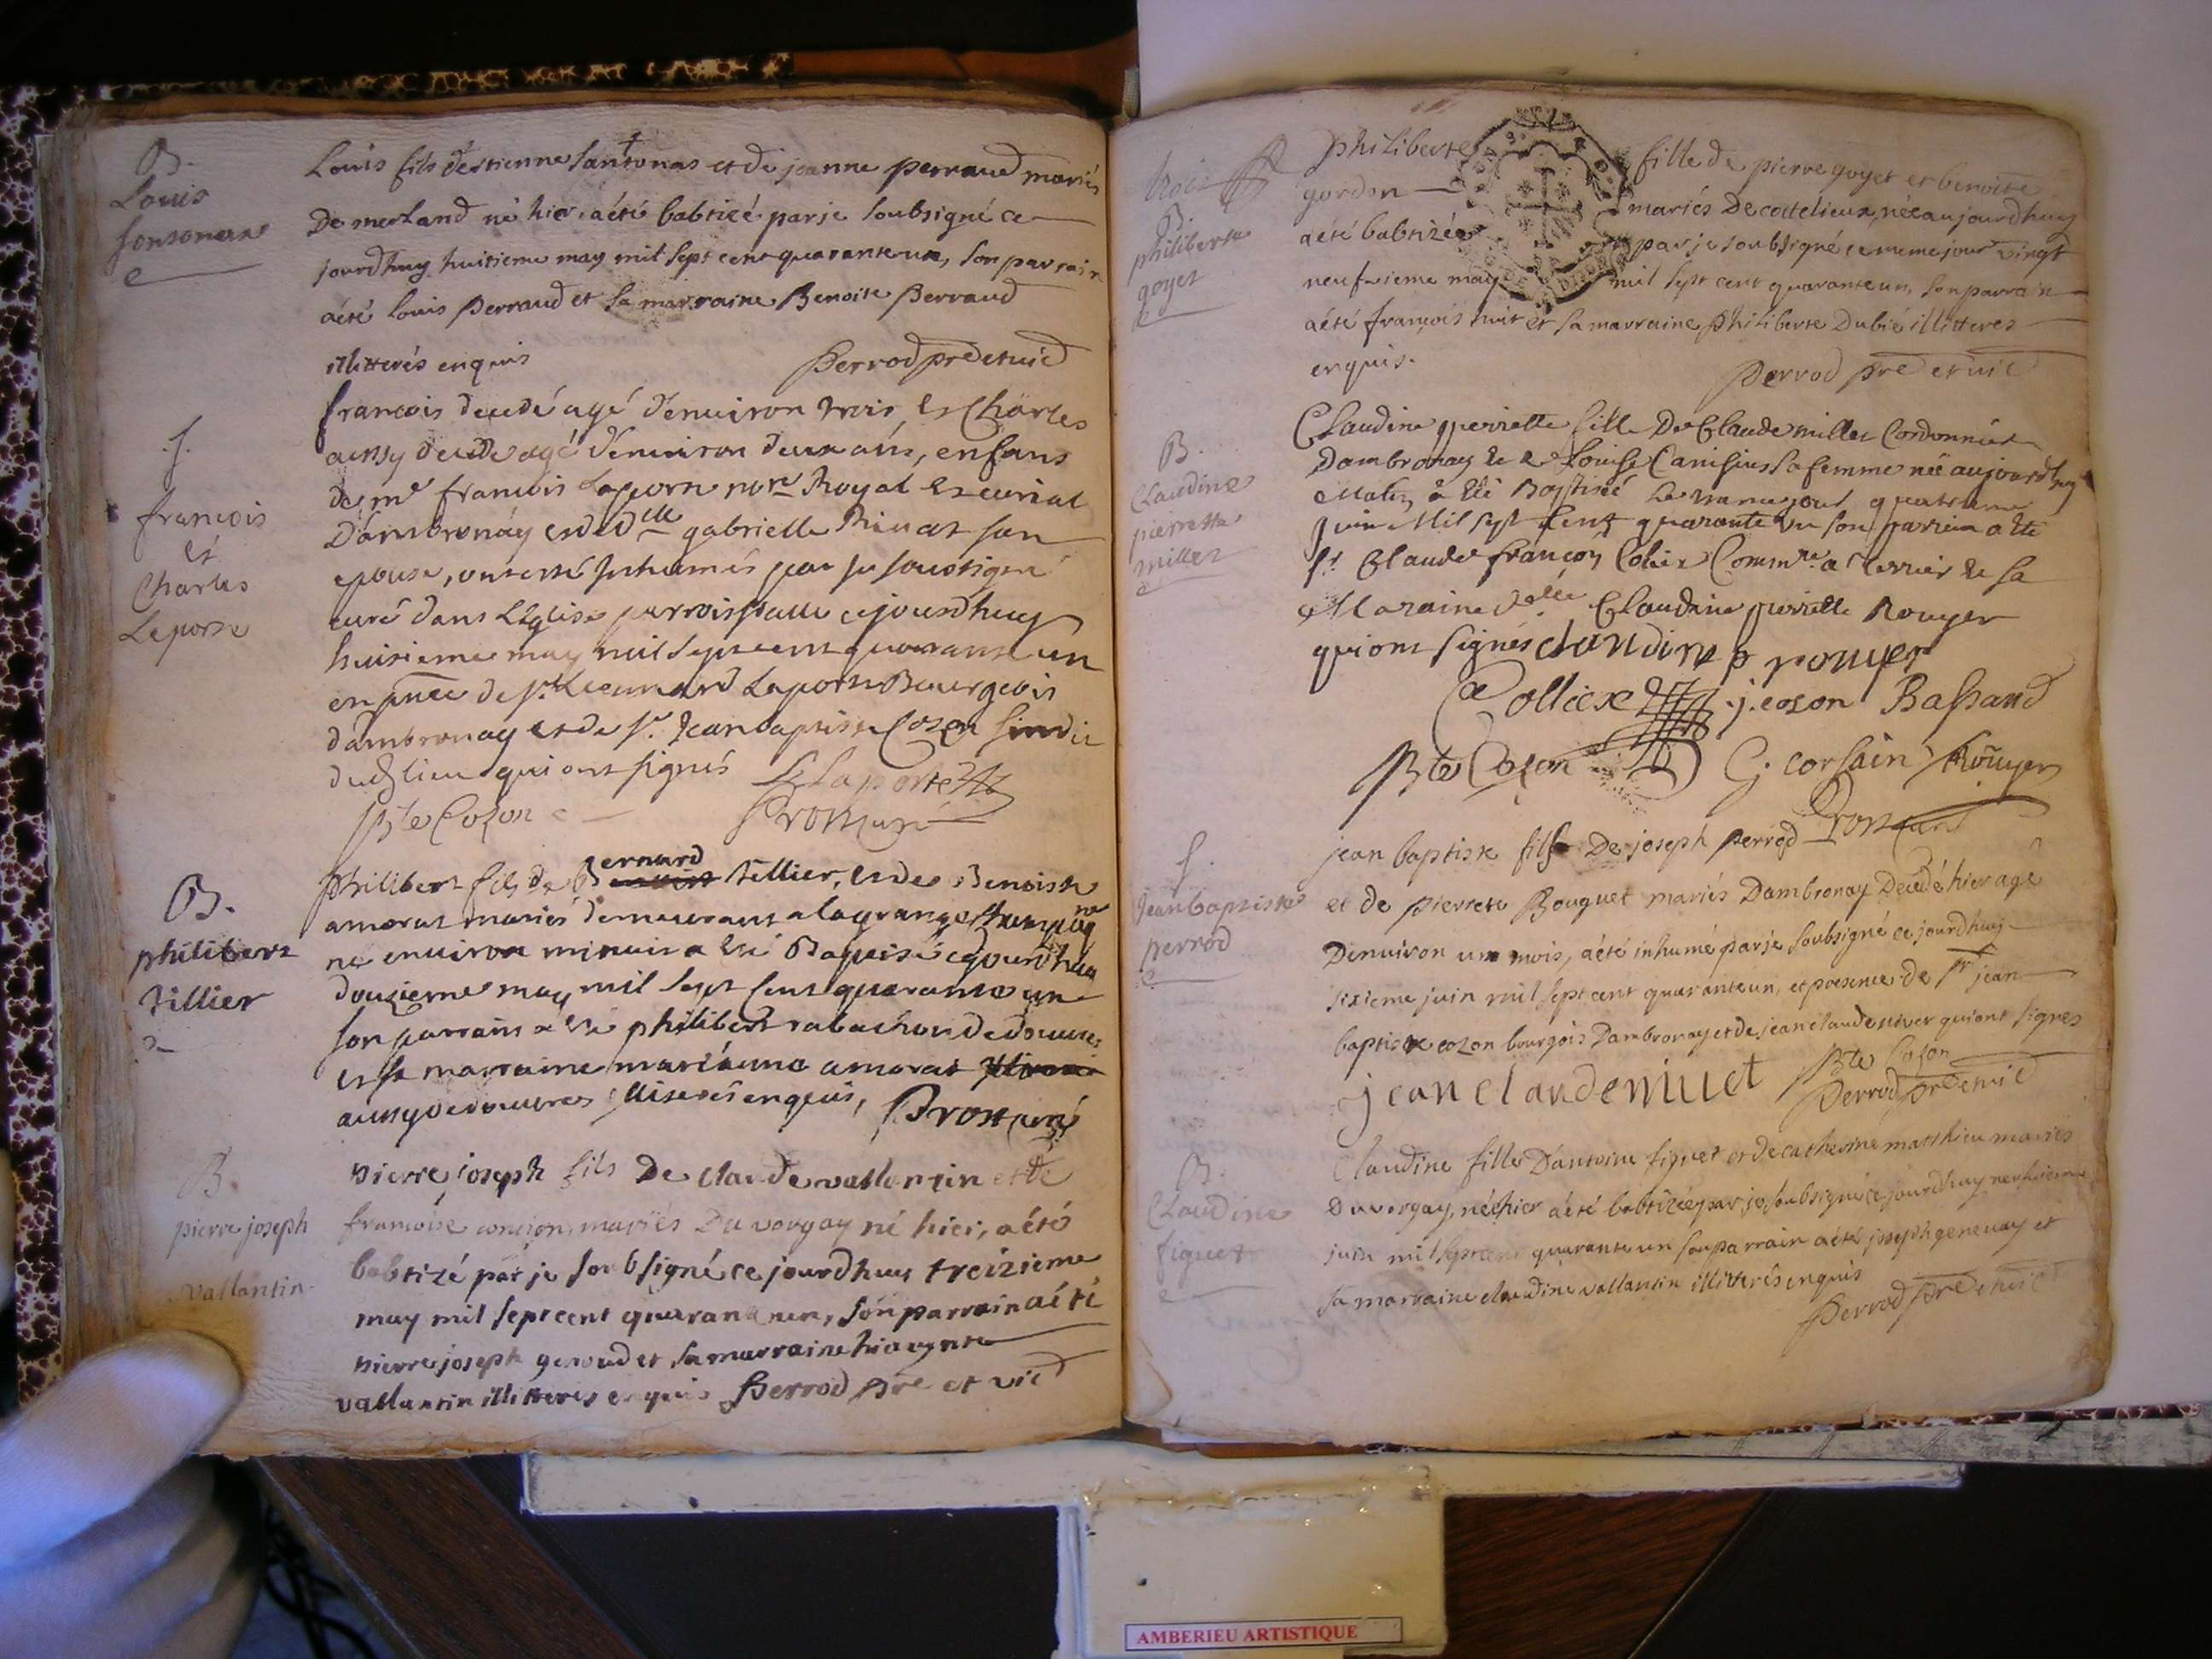 B.
Louis
fontonax
Louis fils d'estienne fantonas et de jeanne perraud mariés
De merland né hier, a été babtizé par je soubsigné ce
jourdhuy huitieme may mil sept cent quarante un, son parrain
a été Louis perraud et sa marraine Benoite perraud
illitterés enquis perrod pre et vic
f.
francois
et
Charles
Laporte
francois decedé agé d'environ trois, et Charles
aussy decedé agé d'environ deux ans, enfans
de me francois Laporte nore Royal et curial
D'ambronay et de delle gabrielle Rivat son
epouse, ont esté inhumés par je soussigné
curé dans L'Eglise parroissialle cejourdhuy
huitieme may mil sept cent quarante un
en pnce de sr. Leonnard Laporte Bourgeois
d'ambronay et de sr. Jean baptiste Cozon sindic
dud lieu qui ont signés L Laporte
Bte Cozon
B.
philibert
tillier
philibert fils de Bernard tillier, et de Benoiste
amorat mariés demeurans a la grange
né environ minuit a été Baptisé cejourdhuy
douzieme may mil sept cent quarante un
son parrain a été philibert rabachon de douvres
et sa marraine marianne amorat
aussy de douvres illiterés enquis,
B.
pierre joseph
vallantin
pierre joseph fils De claude vallantin et de
francoise mariés Du vorgay né hier, a été
babtizé par je soubsigné ce jourdhuy treizieme
may mil sept cent quarante un, son parrain a été
pierre joseph genoud et sa marraine hiacynte
vallantin illitterés enquis perrod pre et vic
trois
B.
philiberte
goyet
philiberte fille de pierre goyet et benoite
gordon mariés De cottelieux, née aujourdhuy
a été babtizée par je soubsigné ce meme jour vingt
neufvieme may mil sept cent quarante un, son parrain
a été francois huit et sa marraine philiberte Dubié illitteres
enquis.
perrod pre et vic
B.
Claudine
pierrette
millet
Claudine pierrette fille De Claude millet Cordonnier
Dambronay et de Louise Canisius sa femme née aujourdhuy
Matin a été Baptisée le mame jour quatrieme
juin Mil sept Cent quarante un son parrein a été
sr. Claude françois Coliex Commre. a terrier et sa
Maraine delle Claudine pierrette Rouyer
qui ont signés claudine p rouyer
Colliex j. cozon Bassand
Bte Cozon G. corsain Roüyer
f.
jean baptiste
perrod
jean baptiste fils De joseph perrod
et de pierrete Bouguet mariés Dambronay Decedé hier agé
Denviron un mois, a été inhumé par je soubsigné ce jourdhuy
sixieme juin mil sept cent quarante un, et presence de sr jean
baptiste cozon bourgois Dambronay et de jean claude niver qui ont signes
jean claude nivet Bte Cozon
perrod pre et vic
B.
Claudine
figuet
Claudine fille D'antoine figuet et de catherine matthieu mariés
Du vorgay, née hier a été babtizée par je soubsigné ce jourdhuy neufvieme
juin mil sept cent quarante un son parrain a été joseph genevay et
sa marraine claudine vallantin illitterés enquis
perrod pre et vic
AMBERIEU ARTISTIQUE